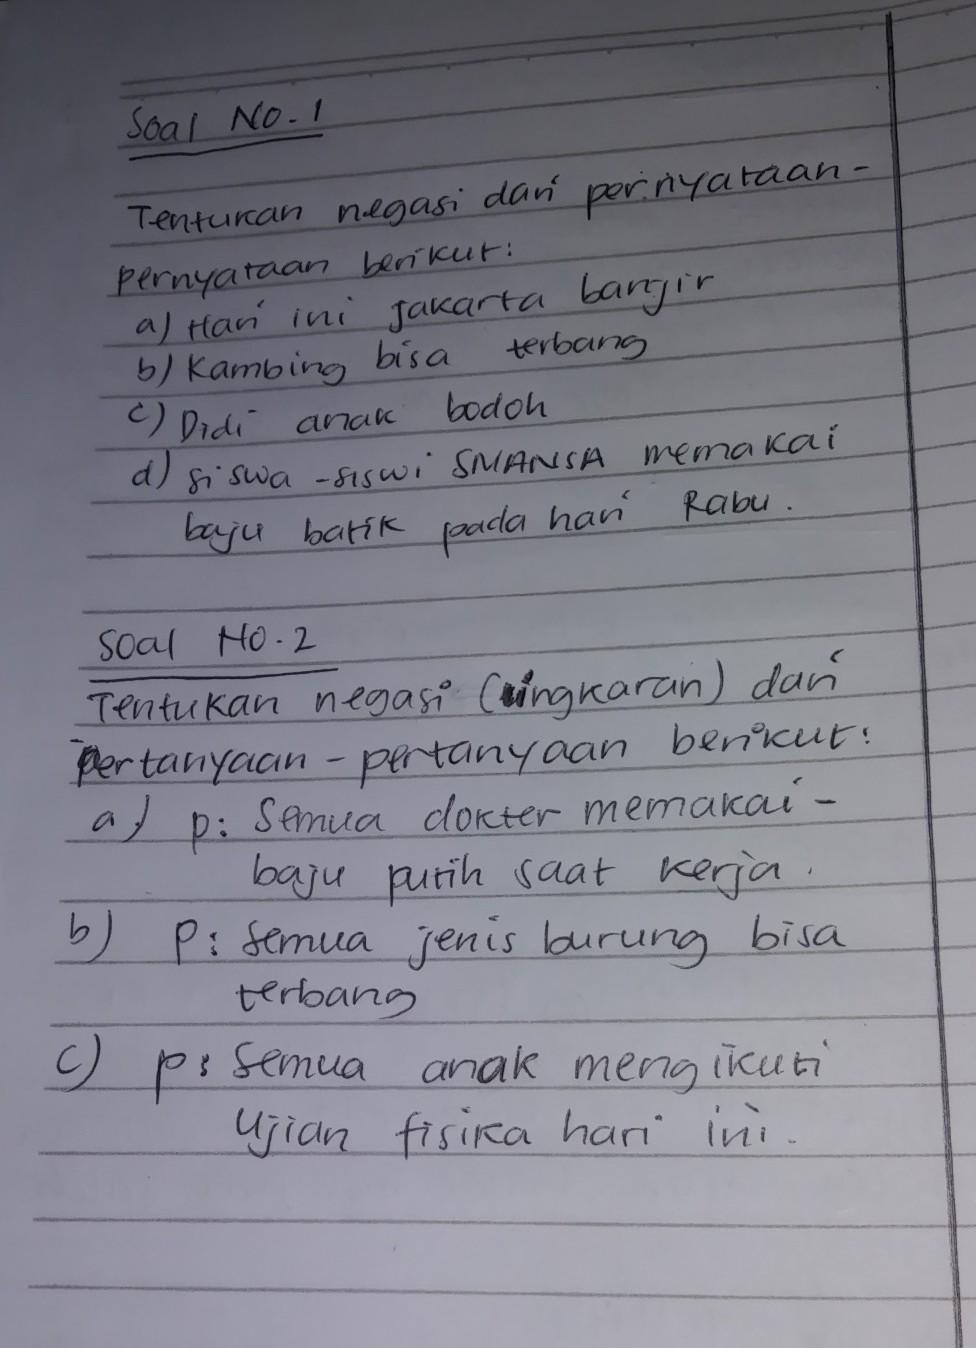 Soal No. 1
Tentukan negasi dari pernyataan -
pernyataan berikut:
a) Hari ini Jakarta banjir
b) Kambing bisa terbang
c) Didi anak bodoh
d) siswa - siswi SMANSA memakai
baju batik pada hari Rabu.
Soal No. 2
Tentukan negasi (ingkaran) dari
Pertanyaan - pertanyaan berikut:
a) p: Semua dokter memakai -
baju putih saat kerja.
b) p: Semua jenis burung bisa
terbang
c) p: Semua anak mengikuti
Ujian fisika hari ini.